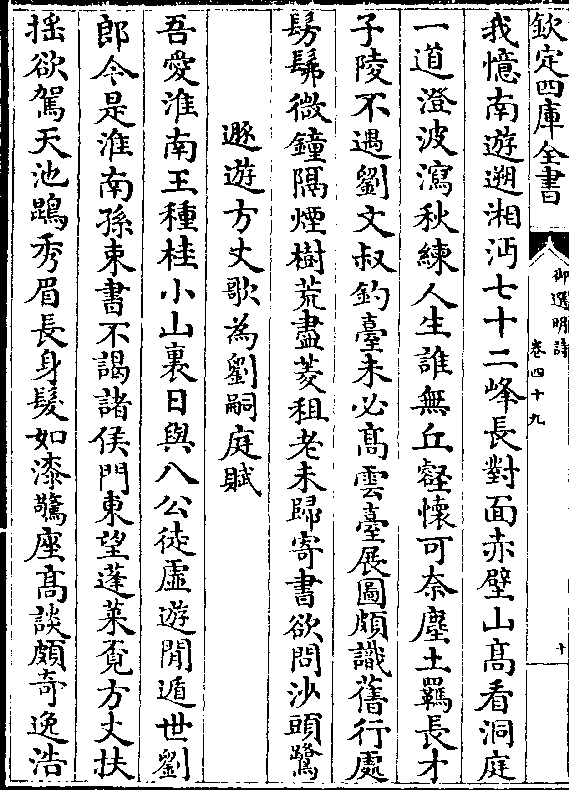 欽定四庫全書
御選明詩
卷四十九
十
我憶南遊遡湘沔七十二峰長對面赤壁山髙看洞庭
一道澄波瀉秋練人生誰無丘壑懷可奈塵土羈長才
子陵不遇劉文叔釣臺未必髙雲臺展圖頗識舊行處
髣髴微鐘隔煙樹荒盡菱租老未歸寄書欲問沙頭鷺
遯遊方丈歌為劉嗣庭賦
吾愛淮南王種桂小山裏日與八公徒虛遊閒遁世劉
郎今是淮南孫束書不謁諸侯門東望蓬萊覔方丈扶
揺欲駕天池鵾秀眉長身髮如漆驚座髙談頗奇逸浩